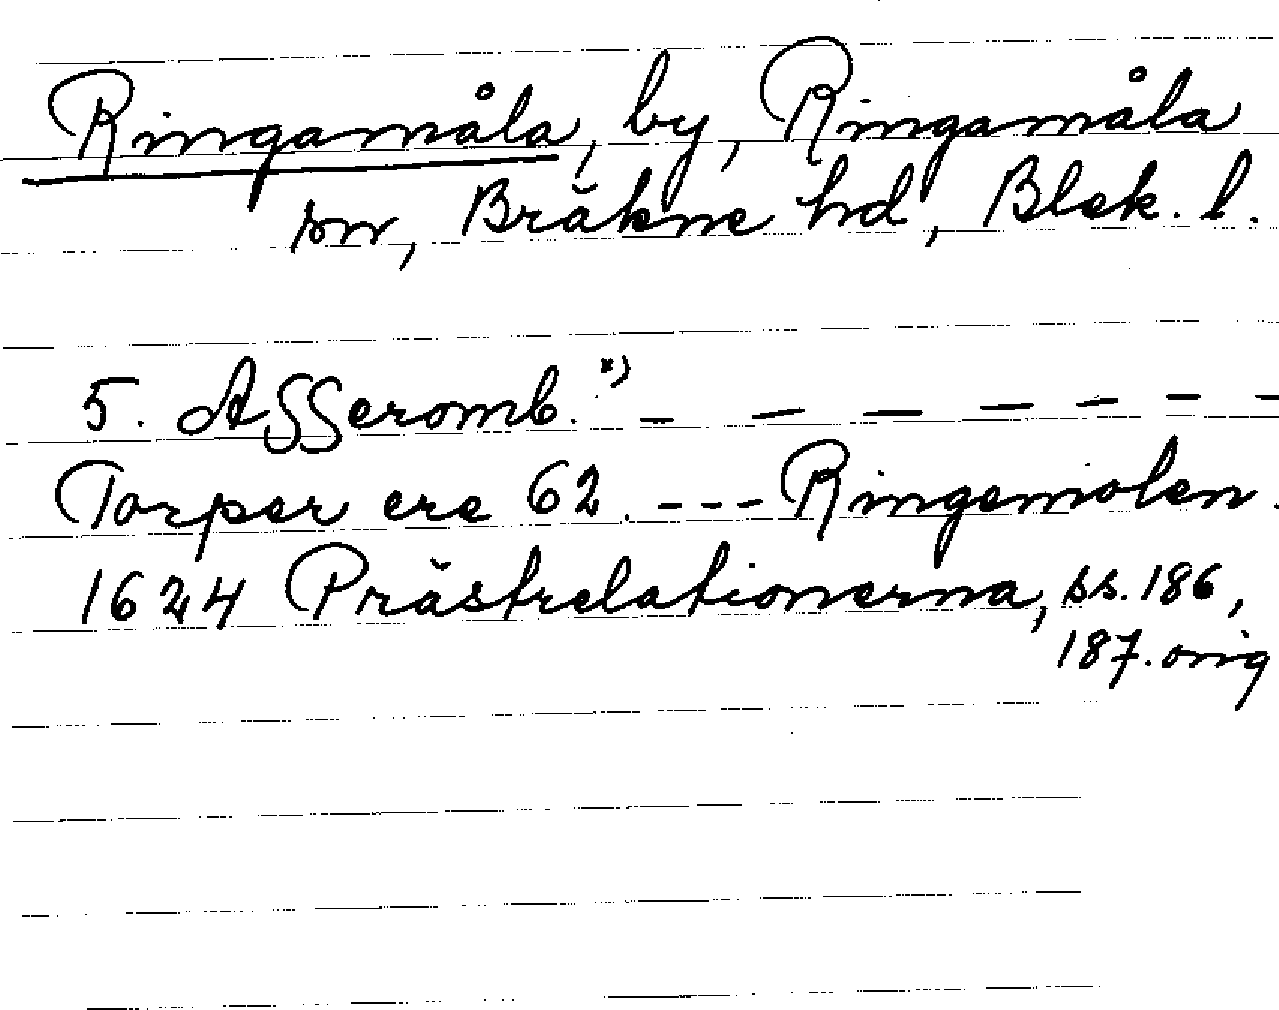 Ringamåla, by, Ringamåla
sn, Bräkne hd, Blek. l.
5. Asseromb. x) – – – – – – –
Torper ere 62. --- Ringemolen.
1624 Prästrelationerna, ss. 186,
187. orig